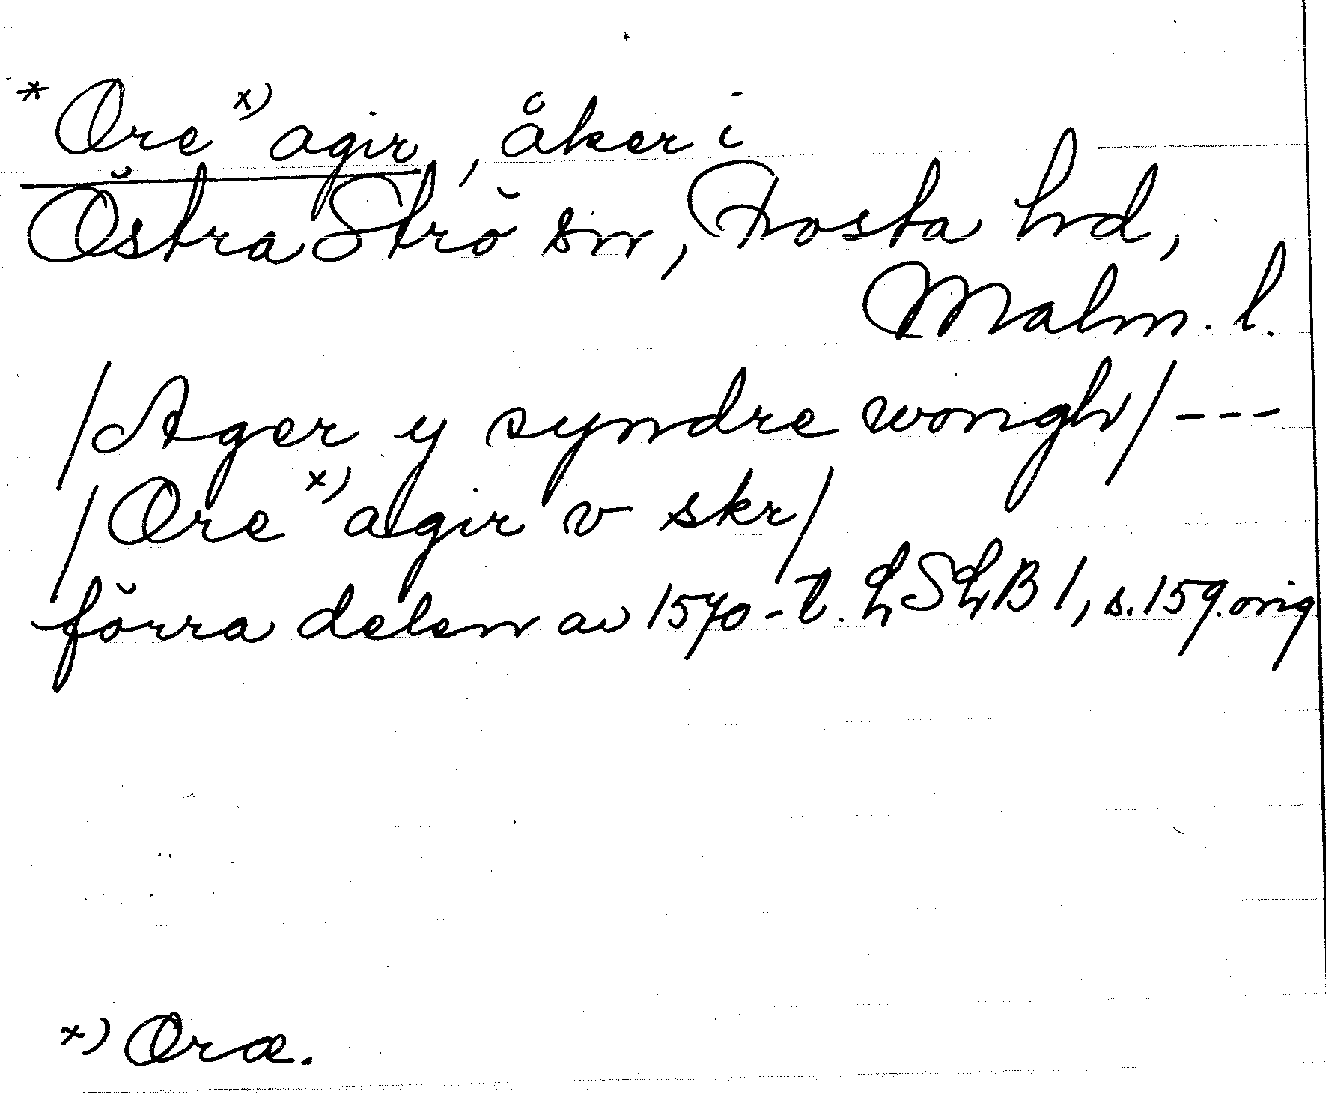 * Ore x) agir, åker i
Östra Strö sn, Frosta hd,
Malm. l.
/Ager y syndre wongh/ ---
/Ore x) agir v skr/
förra delen av 1570-t. LSLB 1, s. 159. orig
x) Oræ.